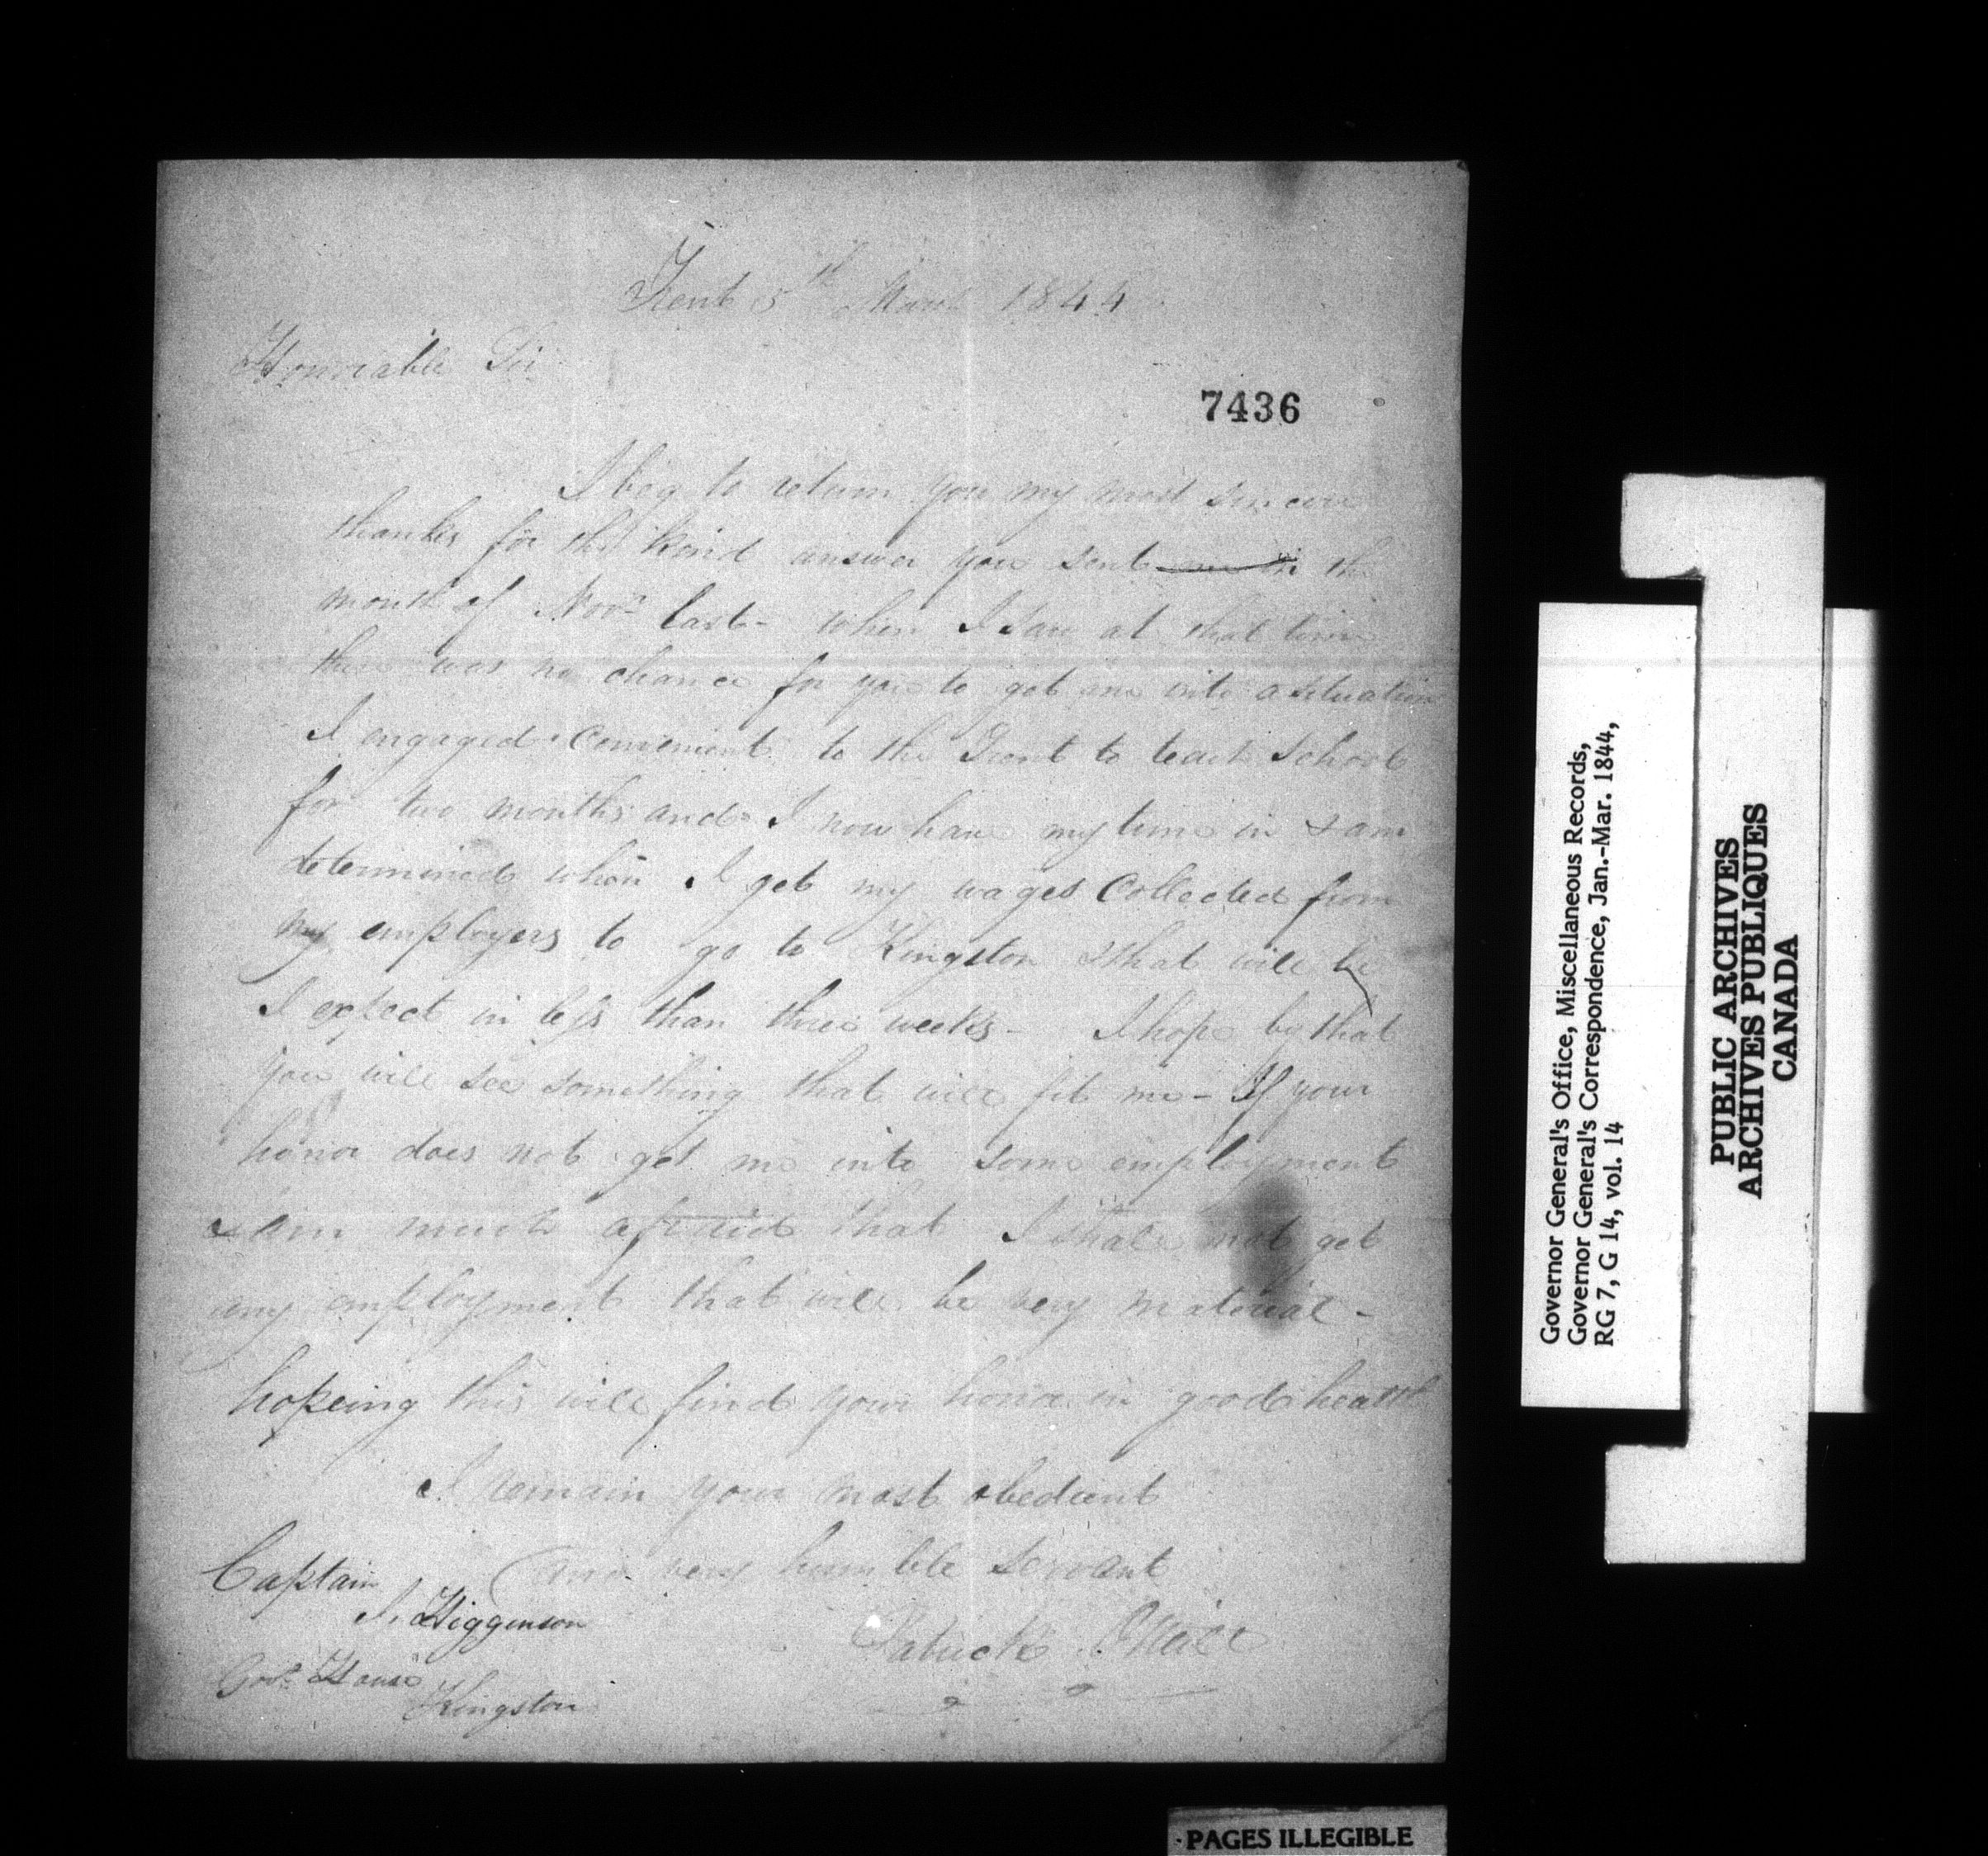 Trent 5th March 1844
Honorable Sir
7436
I beg to return you my most sincere
thanks for the kind answer you sent me in the
month of Novr last - when I saw at that time
there was no chance for you to get me into a situation
I engaged convenient to the Trent to teach School
for two months and I now have my time in & am
determined when I get my wages Collected from
my employers to go to Kingston & that will be
I expect in less than three weeks - I hope by that
you will see something that will fit me - If your
honor does not get me into some employment
I am much afraid that I shall not get
any employment that will be very material -
hopeing this will find your honor in good health
I remain your most obedient
and very humble servant
Patrick ONeill
Captain
J. Higginson
Govt House
Kingston
Governor General's Office, Miscellaneous Records,
Governor General's Correspondence, Jan.-Mar. 1844,
RG 7, G 14, vol. 14
PUBLIC ARCHIVES
ARCHIVES PUBLIQUES
CANADA
PAGES ILLEGIBLE